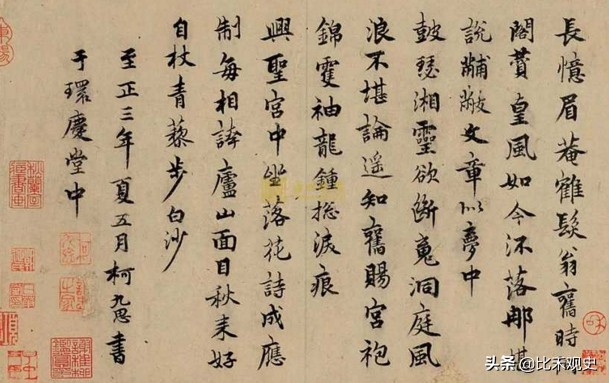 長憶眉菴鶴髮翁舊時
閣賛皇風如今流落那堪
說黼黻文章似夢中
鼓瑟湘靈欲斷魂洞庭風
浪不堪論遥知舊賜宮袍
錦雙袖龍鍾総淚痕
興聖宮中坐落花詩成應
制每相誇廬山面目秋来好
自杖青藜步白沙
至正三年夏五月柯九思書
于環慶堂中
头条 @比禾观史